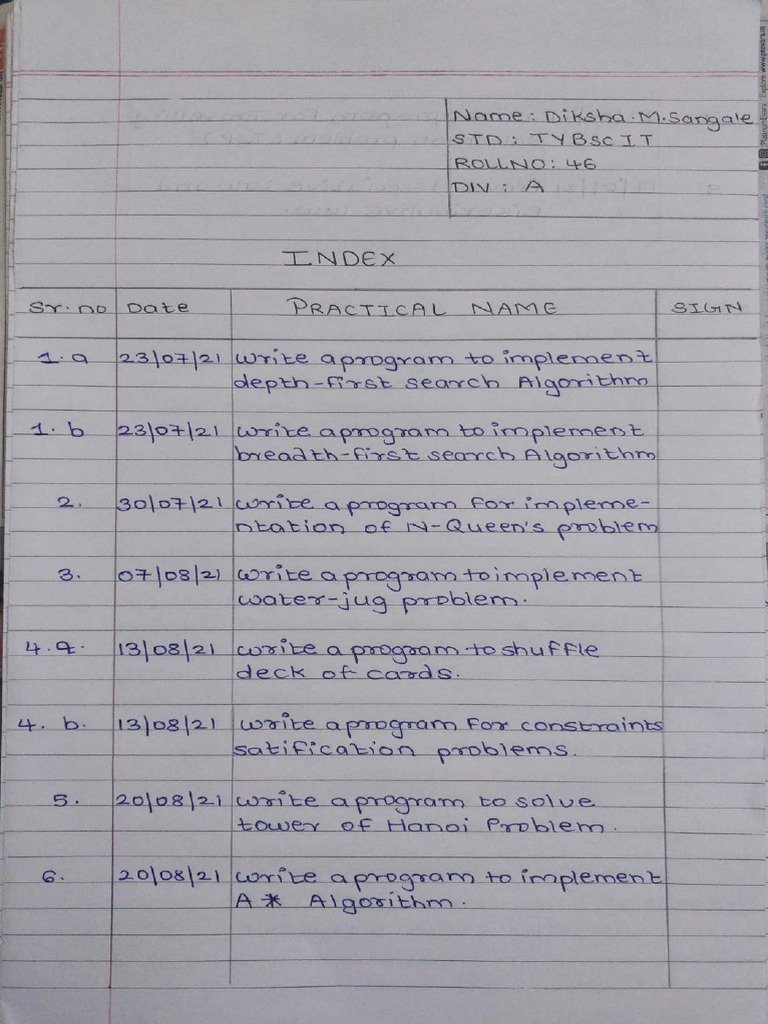 Name: Diksha.M.Sangale
STD: TYBSCIT
ROLLNO: 46
DIV: A
INDEX
Sr.no Date PRACTICAL NAME SIGN
1.a 23/07/21 Write a program to implement
depth-first search Algorithm
1.b 23/07/21 Write a program to implement
breadth-first search Algorithm
2. 30/07/21 Write a program for impleme-
ntation of N-Queen's problem
3. 07/08/21 Write a program to implement
water-jug problem.
4.a. 13/08/21 Write a program to shuffle
deck of cards.
4.b. 13/08/21 Write a program for constraints
satification problems.
5. 20/08/21 Write a program to solve
tower of Hanoi Problem.
6. 20/08/21 Write a program to implement
A* Algorithm.